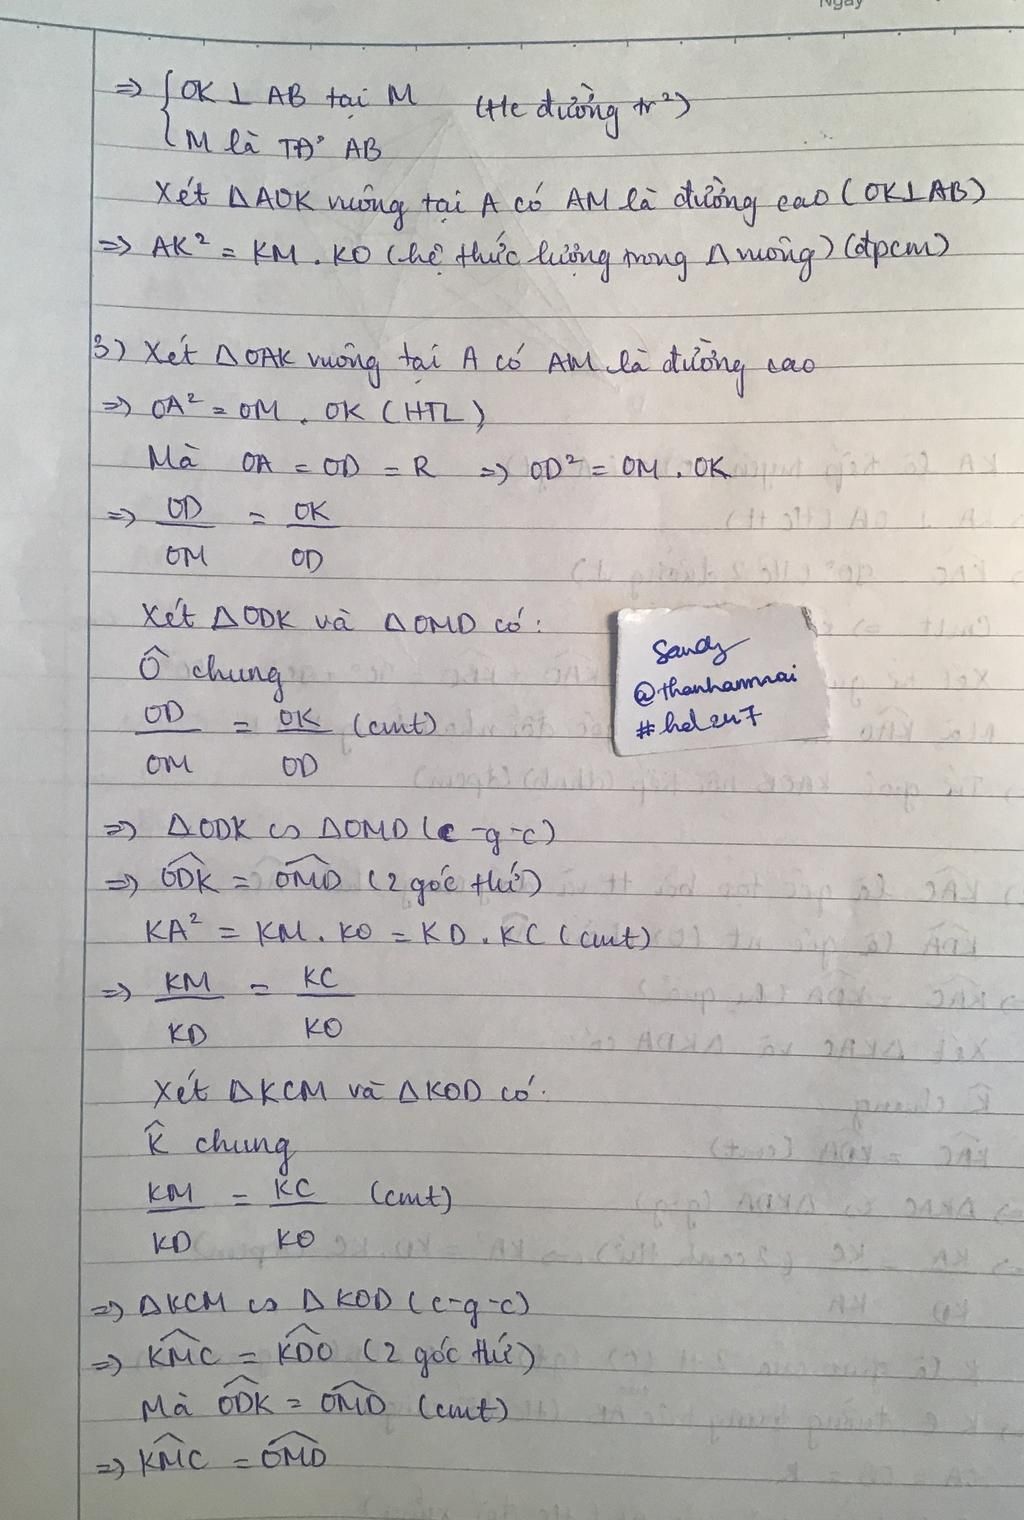 Ngày
⇒ { OK ⊥ AB tại M (Hc đường tr²)
M là TĐ' AB
Xét ΔAOK vuông tại A có AM là đường cao (OK⊥AB)
⇒ AK² = KM . KO (hệ thức lượng trong Δ vuông) (đpcm)
3) Xét ΔOAK vuông tại A có AM là đường cao
⇒ OA² = OM . OK (HTL)
Mà OA = OD = R ⇒ OD² = OM . OK
⇒ OD/OM = OK/OD
Xét ΔODK và ΔOMD có:
Ô chung
OD/OM = OK/OD (cmt)
⇒ ΔODK ∽ ΔOMD (c-g-c)
⇒ ODK^ = OMD^ (2 góc t/ứ)
KA² = KM . KO = KD . KC (cmt)
⇒ KM/KD = KC/KO
Xét ΔKCM và ΔKOD có:
K^ chung
KM/KD = KC/KO (cmt)
⇒ ΔKCM ∽ ΔKOD (c-g-c)
⇒ KMC^ = KDO^ (2 góc t/ứ)
Mà ODK^ = OMD^ (cmt)
⇒ KMC^ = OMD^
Sandy
@thanhanmai
#hd247